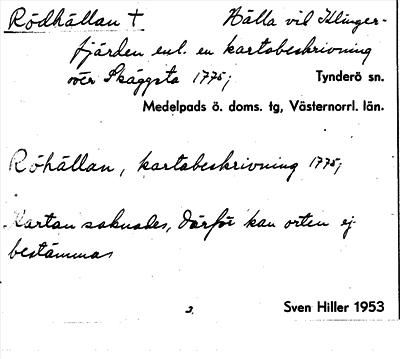 Rödhällan † Hälla vid Klinger-
fjärden enl. en kartabeskrivning
över Skäggsta 1775; Tynderö sn.
Medelpads ö. doms. tg, Västernorrl. län.
Röhällan, kartabeskrivning 1775;
Kartan saknades, därför kan orten ej
bestämmas
2. Sven Hiller 1953